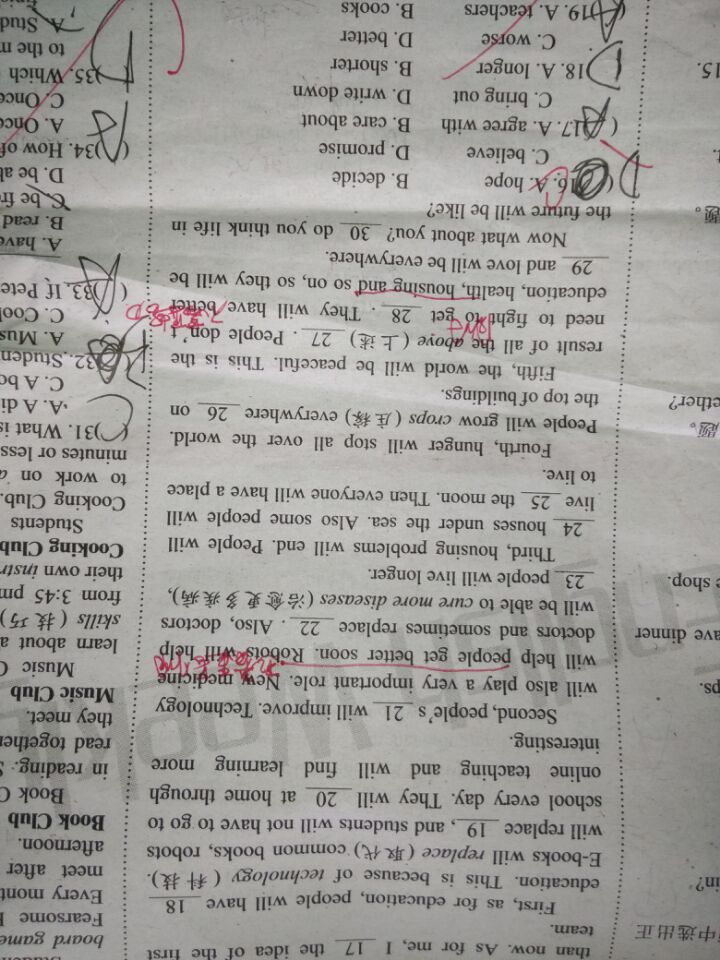 中选出正
in?
ps.
ave dinner
e shop.
题。
ether?
题。
15.
than now. As for me, I 17 the idea of the first
team.
First, as for education, people will have 18
education. This is because of technology (科技).
E-books will replace (取代) common books, robots
will replace 19, and students will not have to go to
school every day. They will 20 at home through
online teaching and will find learning more
interesting.
Second, people's 21 will improve. Technology
will also play a very important role. New medicine
will help people get better soon. Robots will help
doctors and sometimes replace 22. Also, doctors
will be able to cure more diseases (治愈更多疾病),
23 people will live longer.
Third, housing problems will end. People will
24 houses under the sea. Also some people will
live 25 the moon. Then everyone will have a place
to live.
Fourth, hunger will stop all over the world.
People will grow crops (庄稼) everywhere 26 on
the top of buildings.
Fifth, the world will be peaceful. This is the
result of all the above (上述) 27. People don't
need to fight to get 28. They will have better
education, health, housing and so on, so they will be
29 and love will be everywhere.
Now what about you? 30 do you think life in
the future will be like?
( )16. A. hope B. decide
C. believe D. promise
( )17. A. agree with B. care about
C. bring out D. write down
( )18. A. longer B. shorter
C. worse D. better
( )19. A. teachers B. cooks
board game
Fearsome
Every mont
meet after
afternoon.
Book Club
Book C
in reading. S
read together
they meet.
Music Club
Music C
learn about a
skills (技巧)
from 3:45 pm
their own instr
Cooking Club
Students
Cooking Club.
to work on a
minutes or less
( )31. What is
A. A di
C. A bo
( )32. Studen
A. Mus
C. Cook
( )33. If Pete
A. have
B. read
C. be fr
D. be ab
( )34. How of
A. Once
C. Once
( )35. Which
to the m
A. Stud